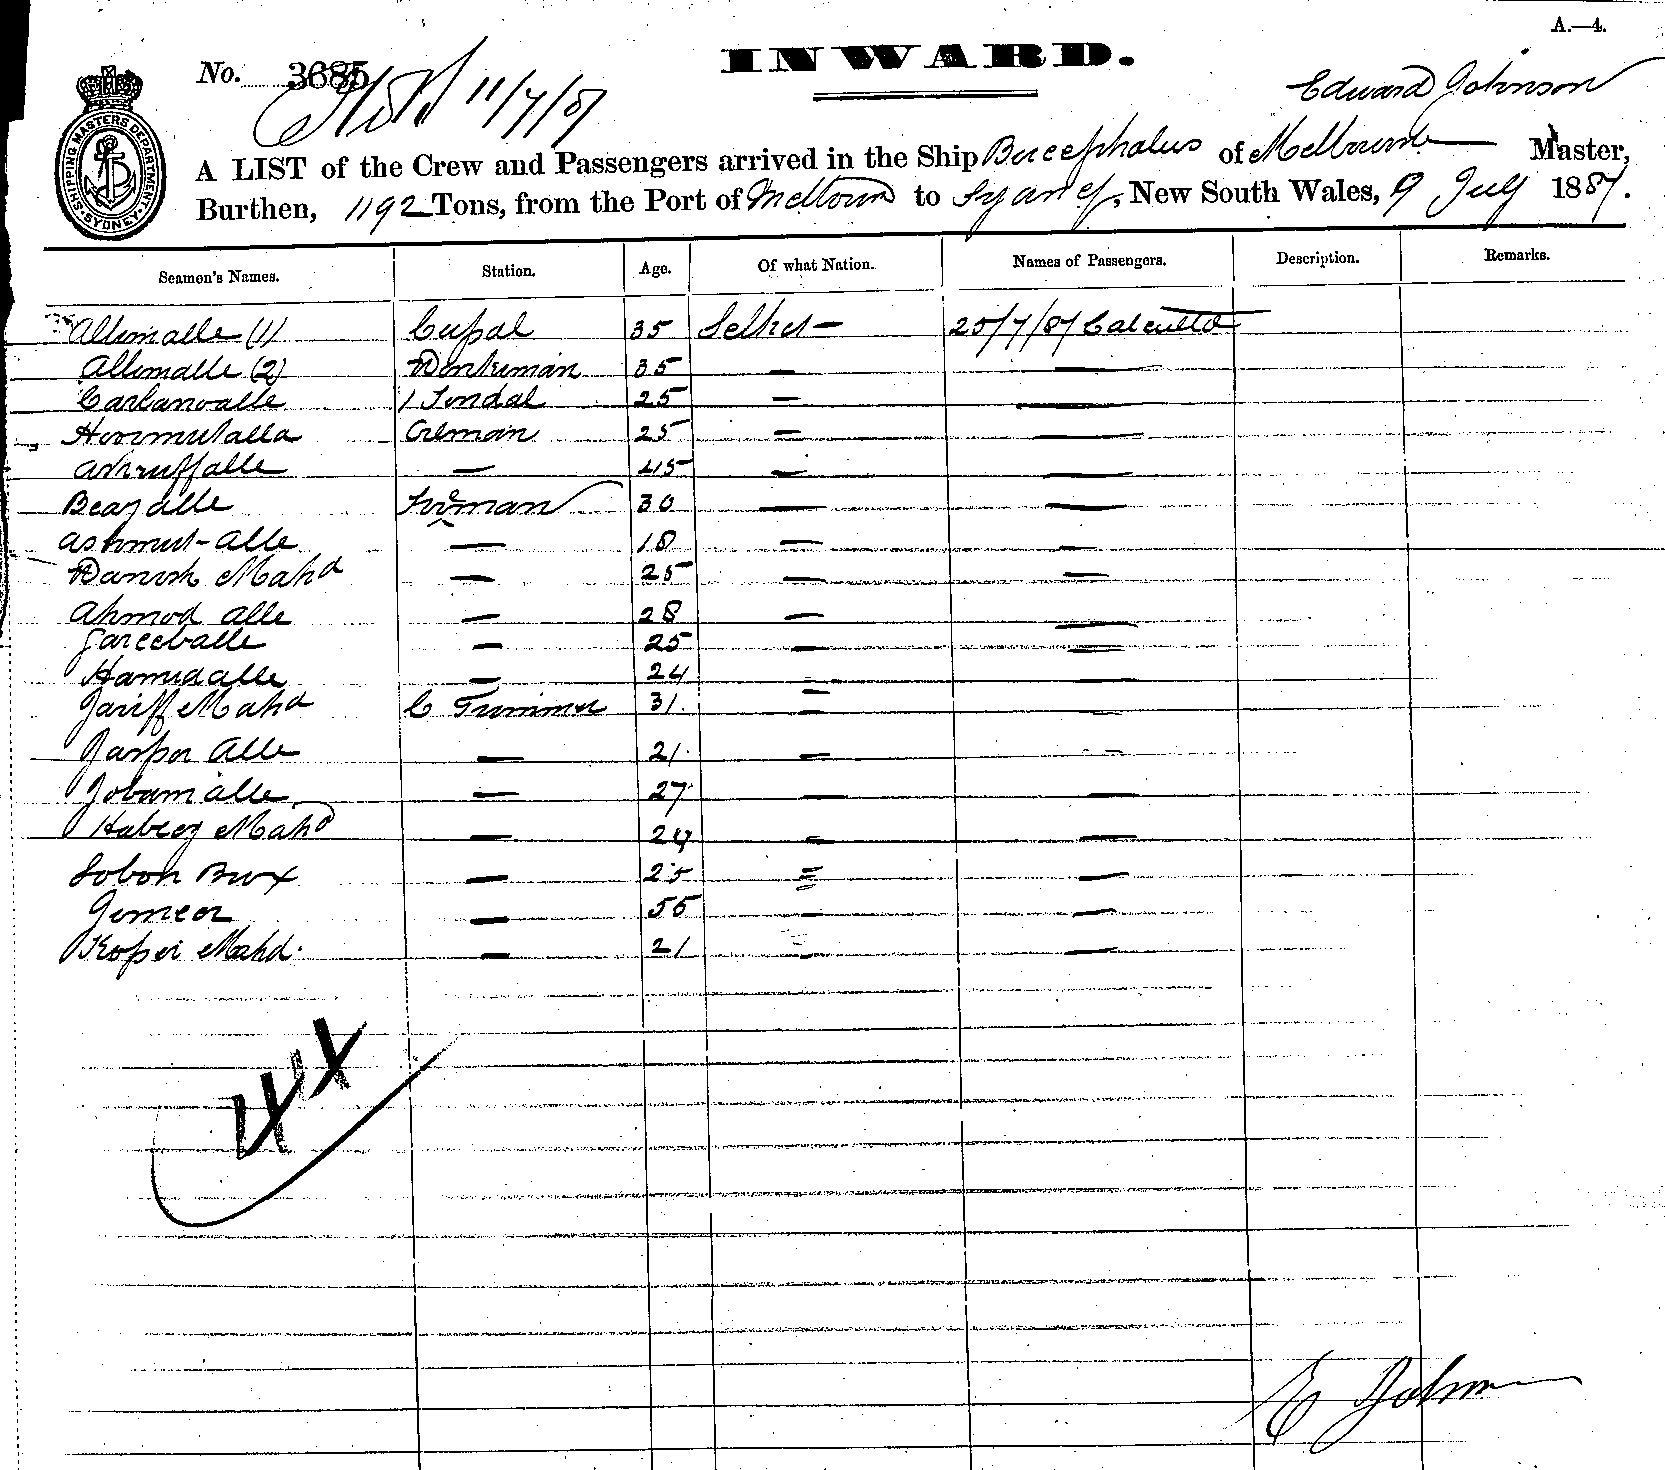 A.—4.
INWARD.
No. 3685
11/7/87
Edward Johnson
SHIPPING MASTERS DEPARTMENT SYDNEY
A LIST of the Crew and Passengers arrived in the Ship Bucephalus of Melbourne Master,
Burthen, 1192 Tons, from the Port of Melbourne to Sydney, New South Wales, 9 July 1887.
Seamen's Names. Station. Age. Of what Nation. Names of Passengers. Description. Remarks.
Allimalle (1) Cupal 35 Selhet — 25/7/87 Calcutta
Allimalle (2) Donkeman 35 — —
1 Tindal 25 — —
Hoormutalla Oilman 25 — —
Ashruffalle — 45 — —
Beazalle Fireman 30 — —
Ashmut-alle — 18 — —
Danish Mahd — 25 — —
Ahmod alle — 28 — —
Gareeballe — 25 — —
Hamidalle — 24 — —
Jariff Mahd C Trimmer 31 — —
Jaspor Alle — 21 — —
Jobamialle — 27 — —
Mahd — 24 — —
Sobon Bux — 25 — —
Gomeer — 55 — —
Mahd. — 21 — —
E Johnson